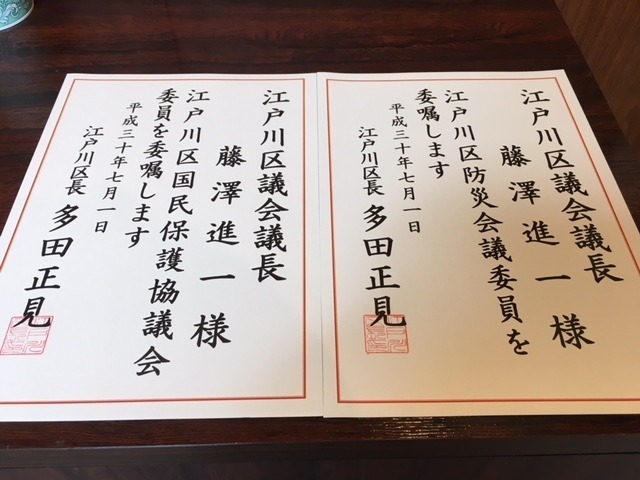 江戸川区議会議長
藤澤進一様
江戸川区防災会議委員を
委嘱します
平成三十年七月一日
江戸川区長 多田正見
江戸川区議会議長
藤澤進一様
江戸川区国民保護協議会
委員を委嘱します
平成三十年七月一日
江戸川区長 多田正見